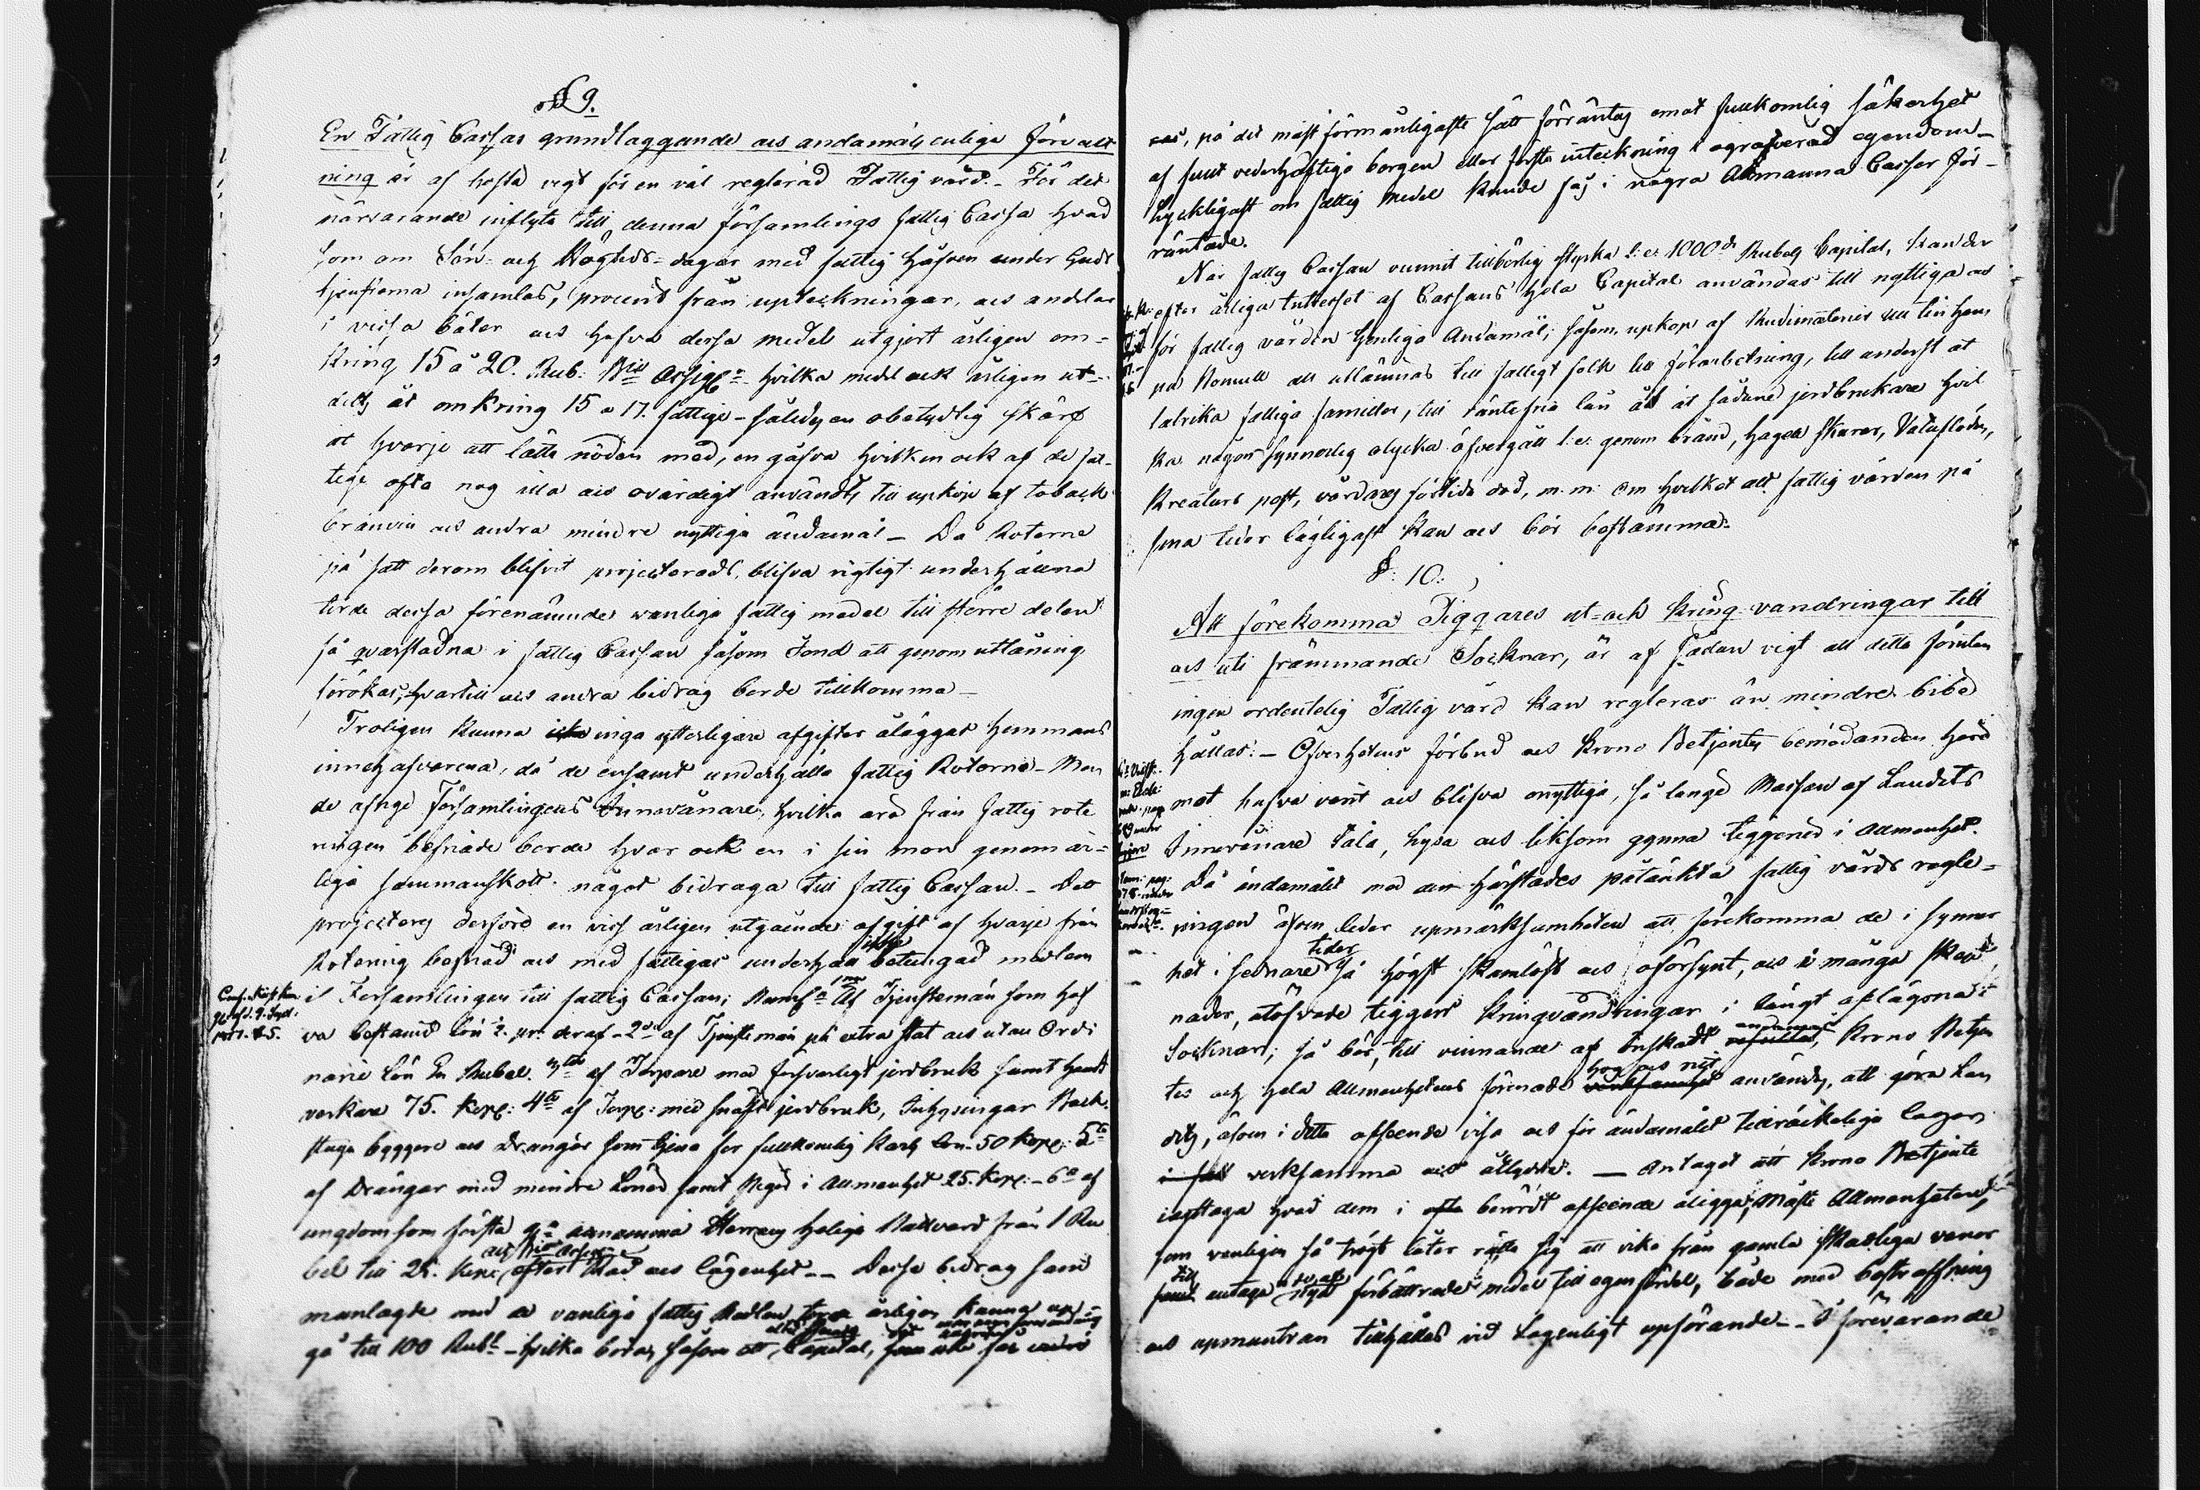 § 9.
En Fattig Cassas grundläggande och andamåls enliga förvalt
ning är af högsta vigt för en väl reglerad Fattig vård. - För det
närvarande inflyta till denna församlings fattig Cassa hvad
som om Sön- och Högtids-dagar med fattig håfven under Guds
tjensterna insamlas, procent från upteckningar, och andelar
i vissa böter och hafva dessa medel utgjort årligen om-
kring 15 à 20. Rub: hvilka medel ock årligen ut-
delts åt omkring 15 a 17. fattige - således en obetydlig skärf
åt hvarje att lätta nöden med, en gåfva hvilken ock af de fat-
tige ofta nog illa och ovärdigt användts till upköp af toback
bränvin och andra mindre nyttiga ändamål - Då Roterne
på sätt derom blifvit projecteradt, blifva rigtigt underhållna
torde dessa förenämnde vanliga fattig medel till större delen
få qvarstadna i fattig Cassan såsom Fond att genom utlåning
förökas, hvartill och andra bidrag borde tillkomma -
Troligen kunna inga ytterligare afgifter åläggas hemmans
innehafvarena, då de ensamt underhålla fattig Roterne - Men
de öfrige Församlingens Innevånare, hvilka äro från fattig rote
ringen befriade borde hvar ock en i sin mon genom år-
liga sammanskott något bidraga till fattig Cassan. - Dett
projecteras derföre en viss årligen utgående afgift af hvarje från
Rotering befriad och med fattigas underhåll icke betungad medlem
i Församlingen till fattig Cassan; 1mo Af Tjensteman som haf
va bestämd lön af Tjensteman på extra stat och utan Ordi
narie lön En Rubel. af Torpare med försvarligt jordbruk samt handt
verkare 75. Kop: 4to af Torp: med smått jordbruk, Inhysingar Back
stuga byggare och Drängar som tjena for fullkomlig Karls lön 50 Kop: 5to
af Drängar med mindre Löner samt Pigor i allmänhet 25. Kop: - 6o af
ungdom som första gn annamma Herrans Heliga Nattvard från 1 Ru
bel till 25. Kop: efter råd och lägenhet - Dessa bidrag sam
manlagde med de vanliga fattig Medlen torde årligen kunna up-
gå till 100 Rubl - hvilka böra såsom ett Capital,
Conf. Kejs. Kun
af d. 9. Sept.
, på det mäst förmånligaste sätt förräntas emot fullkomlig säkerhet
af sunt vederhäftige borgen eller första inteckning i ograverad egendom -
Lyckligast om fattig medel kunde fås i några Allmänna Cassor för-
räntade.
När fattig Cassan vunnit tillbörlig styrka l: e: 1000de Rubels Capital, kan der
efter årliga Intresset af Cassans hela Capital användas till nyttiga och
för fattig vården henliga Ändamål; såsom upköp af Rudimaterier
Bomull att utlämnas till fattigt folk till förarbetning, till understöd at
talrika fattiga familler, till räntefria lån åt sådane jordbrukare hvil
ka någon synnerlig olycka öfvergått l: e: genom brand, hagel skurar, Vatuflöden,
Kreaturs pest, vårdares förtida död, m. m: om hvilket allt fattig vården på
sina tider lägligast kan och bör bestämma.
§: 10:
Att förekomma Tiggares ut- och kring vandringar till
och uti främmande Socknar, är af sådan vigt att detta förutan
ingen ordentelig Fattig vård kan regleras än mindre bibe
hållas: - Öfverhetens förbud och Krono Betjentes bemödanden här
mot hafva varit och blifva onyttiga, så länge Massan af Landets
Innevånare tåla, hysa och liksom gynna tiggeriet i allmänhet.
Då ändamålet med den härstädes påtänkta fattig vårds regle-
ringen äfven leder upmärksamheten att förekomma de i synner
het i sednare tider så högst skamlöst och oförsynt, och i många skep
nader, utöfvade tiggeri kringvandringar i långt aflägsna
Socknar; så bör, till vinnande af önskadt ändamål, Krono Betjen
tes och hela Allmänhetens förenade användas, att göra Lan
dets, äfven i detta afseende visa och för ändamålet tillräckeliga lagar
verksamma och åtlydde. - Antaget att Krono Betjente
iagttaga hvad dem i berördt afseende åligger, måste Allmänheten
som vanligen så trögt låter rätta sig att vika från gamla skadliga vanor
antaga förbättrade medel till egen fördel, både med bestraffning
och upmuntran tillhållas vid Lagenligt upförande - I förevarande